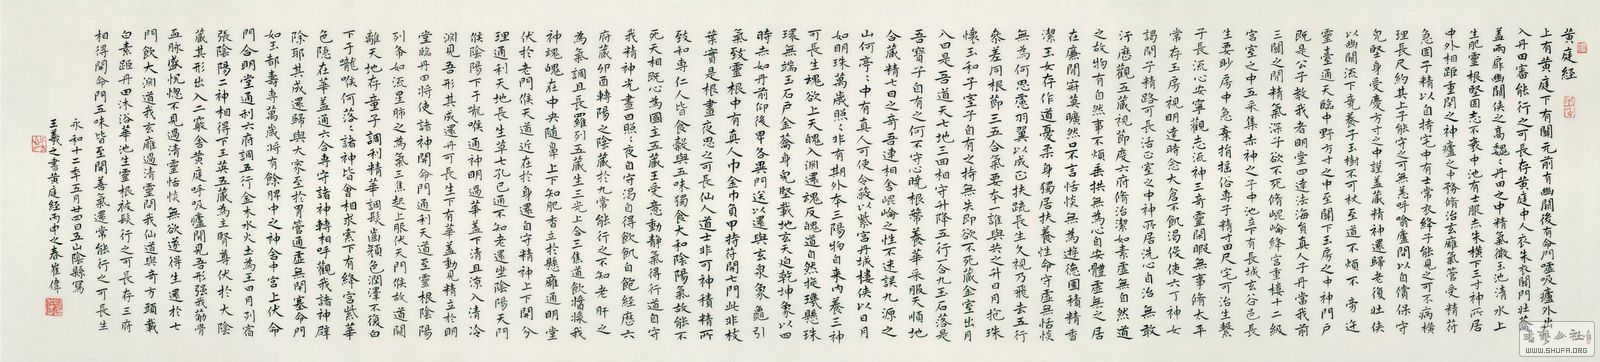 黄庭經
上有黄庭下有關元前有幽闕後有命門噓吸廬外出
入丹田審能行之可長存黄庭中人衣朱衣關門壯蘥
蓋兩扉幽闕俠之高魏〻丹田之中精氣微玉池清水上
生肥靈根堅固志不衰中池有士服赤朱横下三寸神所居
中外相距重閉之神廬之中務脩治玄廱氣管受精符
急固子精以自持宅中有士常衣絳子能見之可不病横
理長尺約其上子能守之可無恙呼噏廬間以自償保守
皃堅身受慶方寸之中謹蓋藏精神還歸老復壯俠
以幽闕流下竟養子玉樹不可杖至道不煩不旁迕
靈臺通天臨中野方寸之中至關下玉房之中神門戶
既是公子教我者明堂四達法海員真人子丹當我前
三關之間精氣深子欲不死脩崐崘絳宮重樓十二級
宮室之中五采集赤神之子中池立下有長城玄谷邑長
生要眇房中急棄捐搖俗專子精寸田尺宅可治生繫
子長流心安寧觀志流神三奇靈閑暇無事脩太平
常存玉房視明達時念大倉不飢渴役使六丁神女
謁閉子精路可長活正室之中神所居洗心自治無敢
汙歷觀五藏視節度六府脩治潔如素虛無自然道
之故物有自然事不煩垂拱無為心自安體虛無之居
在廉間寂莫曠然口不言恬惔無為遊德園積精香
潔玉女存作道憂柔身獨居扶養性命守虛無恬惔
無為何思慮羽翼以成正扶疏長生久視乃飛去五行
參差同根節三五合氣要本一誰與共之升日月抱珠
懷玉和子室子自有之持無失即欲不死藏金室出月
入日是吾道天七地三回相守升降五行合九玉石落是
吾寶子自有之何不守心曉根蒂養華采服天順地
合藏精七日之奇吾連相合崐崘之性不迷誤九源之
山何亭〻中有真人可使令蔽以紫宮丹城樓俠以日月
如明珠萬歲昭〻非有期外本三陽物自来内養三神
可長生魂欲上天魄入淵還魂反魄道自然旋璣懸珠
環無端玉石戶金籥身皃堅載地玄天迫乾坤象以四
時赤如丹前仰後卑各異門送以還與玄泉象龜引
氣致靈根中有真人巾金巾負甲持符開七門此非枝
葉實是根晝夜思之可長仙人道士非可神積精所
致和專仁人皆食穀與五味獨食大和陰陽氣故能不
死天相既心為國主五藏王受意動静氣得行道自守
我精神光晝日昭〻夜自守渴自得飲飢自飽経歷六
府藏卯酉轉陽之陰藏於九常能行之不知老肝之
為氣調且長羅列五藏生三光上合三焦道飲醬漿我
神魂魄在中央随鼻上下知肥香立於懸廱通明堂
伏於老門候天道近在於身還自守精神上下開分
理通利天地長生草七孔已通不知老還坐陰陽天門
候陰陽下于嚨喉通神明過華蓋下清且涼入清冷
淵見吾形其成還丹可長生下有華蓋動見精立於明
堂臨丹田將使諸神開命門通利天道至靈根陰陽
列布如流星肺之為氣三焦起上服伏天門候故道闚
離天地存童子調利精華調髮齒顏色潤澤不復白
下于嚨喉何落〻諸神皆會相求索下有絳宮紫華
色隱在華蓋通六合專守諸神轉相呼觀我諸神辟
除耶其成還歸與大家至於胃管通虛無閉塞命門
如玉都壽專萬歲將有餘脾中之神舍中宮上伏命
門合明堂通利六府調五行金木水火土為王日月列宿
張陰陽二神相得下玉英五藏為主腎最尊伏於大陰
藏其形出入二竅舍黄庭呼吸廬間見吾形强我筋骨
血脈盛恍惚不見過清靈恬惔無欲遂得生還於七
門飲大淵道我玄廱過清靈問我仙道與奇方頭載
白素距丹田沐浴華池生靈根被髮行之可長存三府
相得開命門五味皆至開善氣還常能行之可長生
永和十二年五月廿四日五山陰縣寫
王羲之書黄庭經丙申之春崔偉
書法公社
WWW.SHUFA.ORG